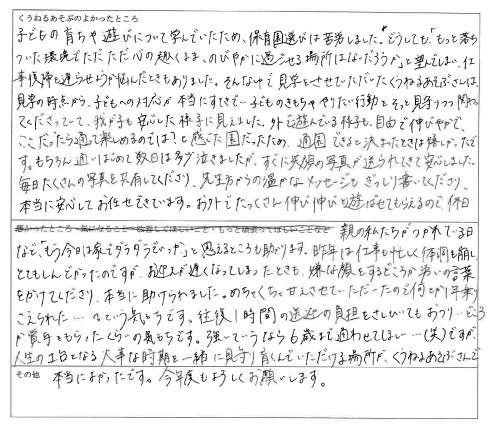 くうねるあそぶのよかったところ
子どもの育ちや遊びについて学んでいたため、保育園選びは苦労しました。どうしても、「もっと落ち
ついた環境でただただ心の趣くまま、のびやかに過ごせる場所はないだろうか」と望んでしまい、仕
事復帰を遅らせようか悩んだときもありました。そんな中で見学をさせていただいたくうねるあそぶさんは、
見学の時点から、子どもへの対応が本当にすてきで…子どものきもちややりたい行動をそっと見守りつつ関わっ
てくださっていて、我が子も安心した様子に見えました。外で遊んでいる様子も、自由で伸びやかで、
ここだったら通って楽しめるのでは?と感じた園だったため、通園できると決まったときは嬉しかったで
す。もちろん通いはじめて数日は多少泣きましたが、すぐに笑顔の写真が送られてきて安心しました。
毎日たくさんの写真を共有してくださり、先生方からの温かなメッセージもぎっしり書いてくださり、
本当に安心してお任せできています。お外でたっくさん伸び伸びと遊ばせてもらえるので、休日
悪かったところ・気になること・改善してほしいこと・もっと頑張ってほしいことなど 親の私たちがつかれている日
など、「もう今日は家でダラダラでいっか」と思えるところも助かります。昨年は仕事も忙しく体調も崩し
とてもしんどかったのですが、お迎えが遅くなってしまったときも、嫌な顔をするどころか労いの言葉
をかけてくださり、本当に助けられました。めちゃくちゃ甘えさせていただいたので何とか1年乗り
こえられた…という気もちです。往復1時間の送迎の負担をさしひいてもおつり…どころ
か賞与をもらったくらいの気もちです。強いていうなら6歳まで通わせてほしい…(笑)ですが、
人生の土台となる大事な時期を一緒に見守り育くんでいただける場所が、くうねるあそぶさんで
その他 本当によかったです。今年度もよろしくお願いします。